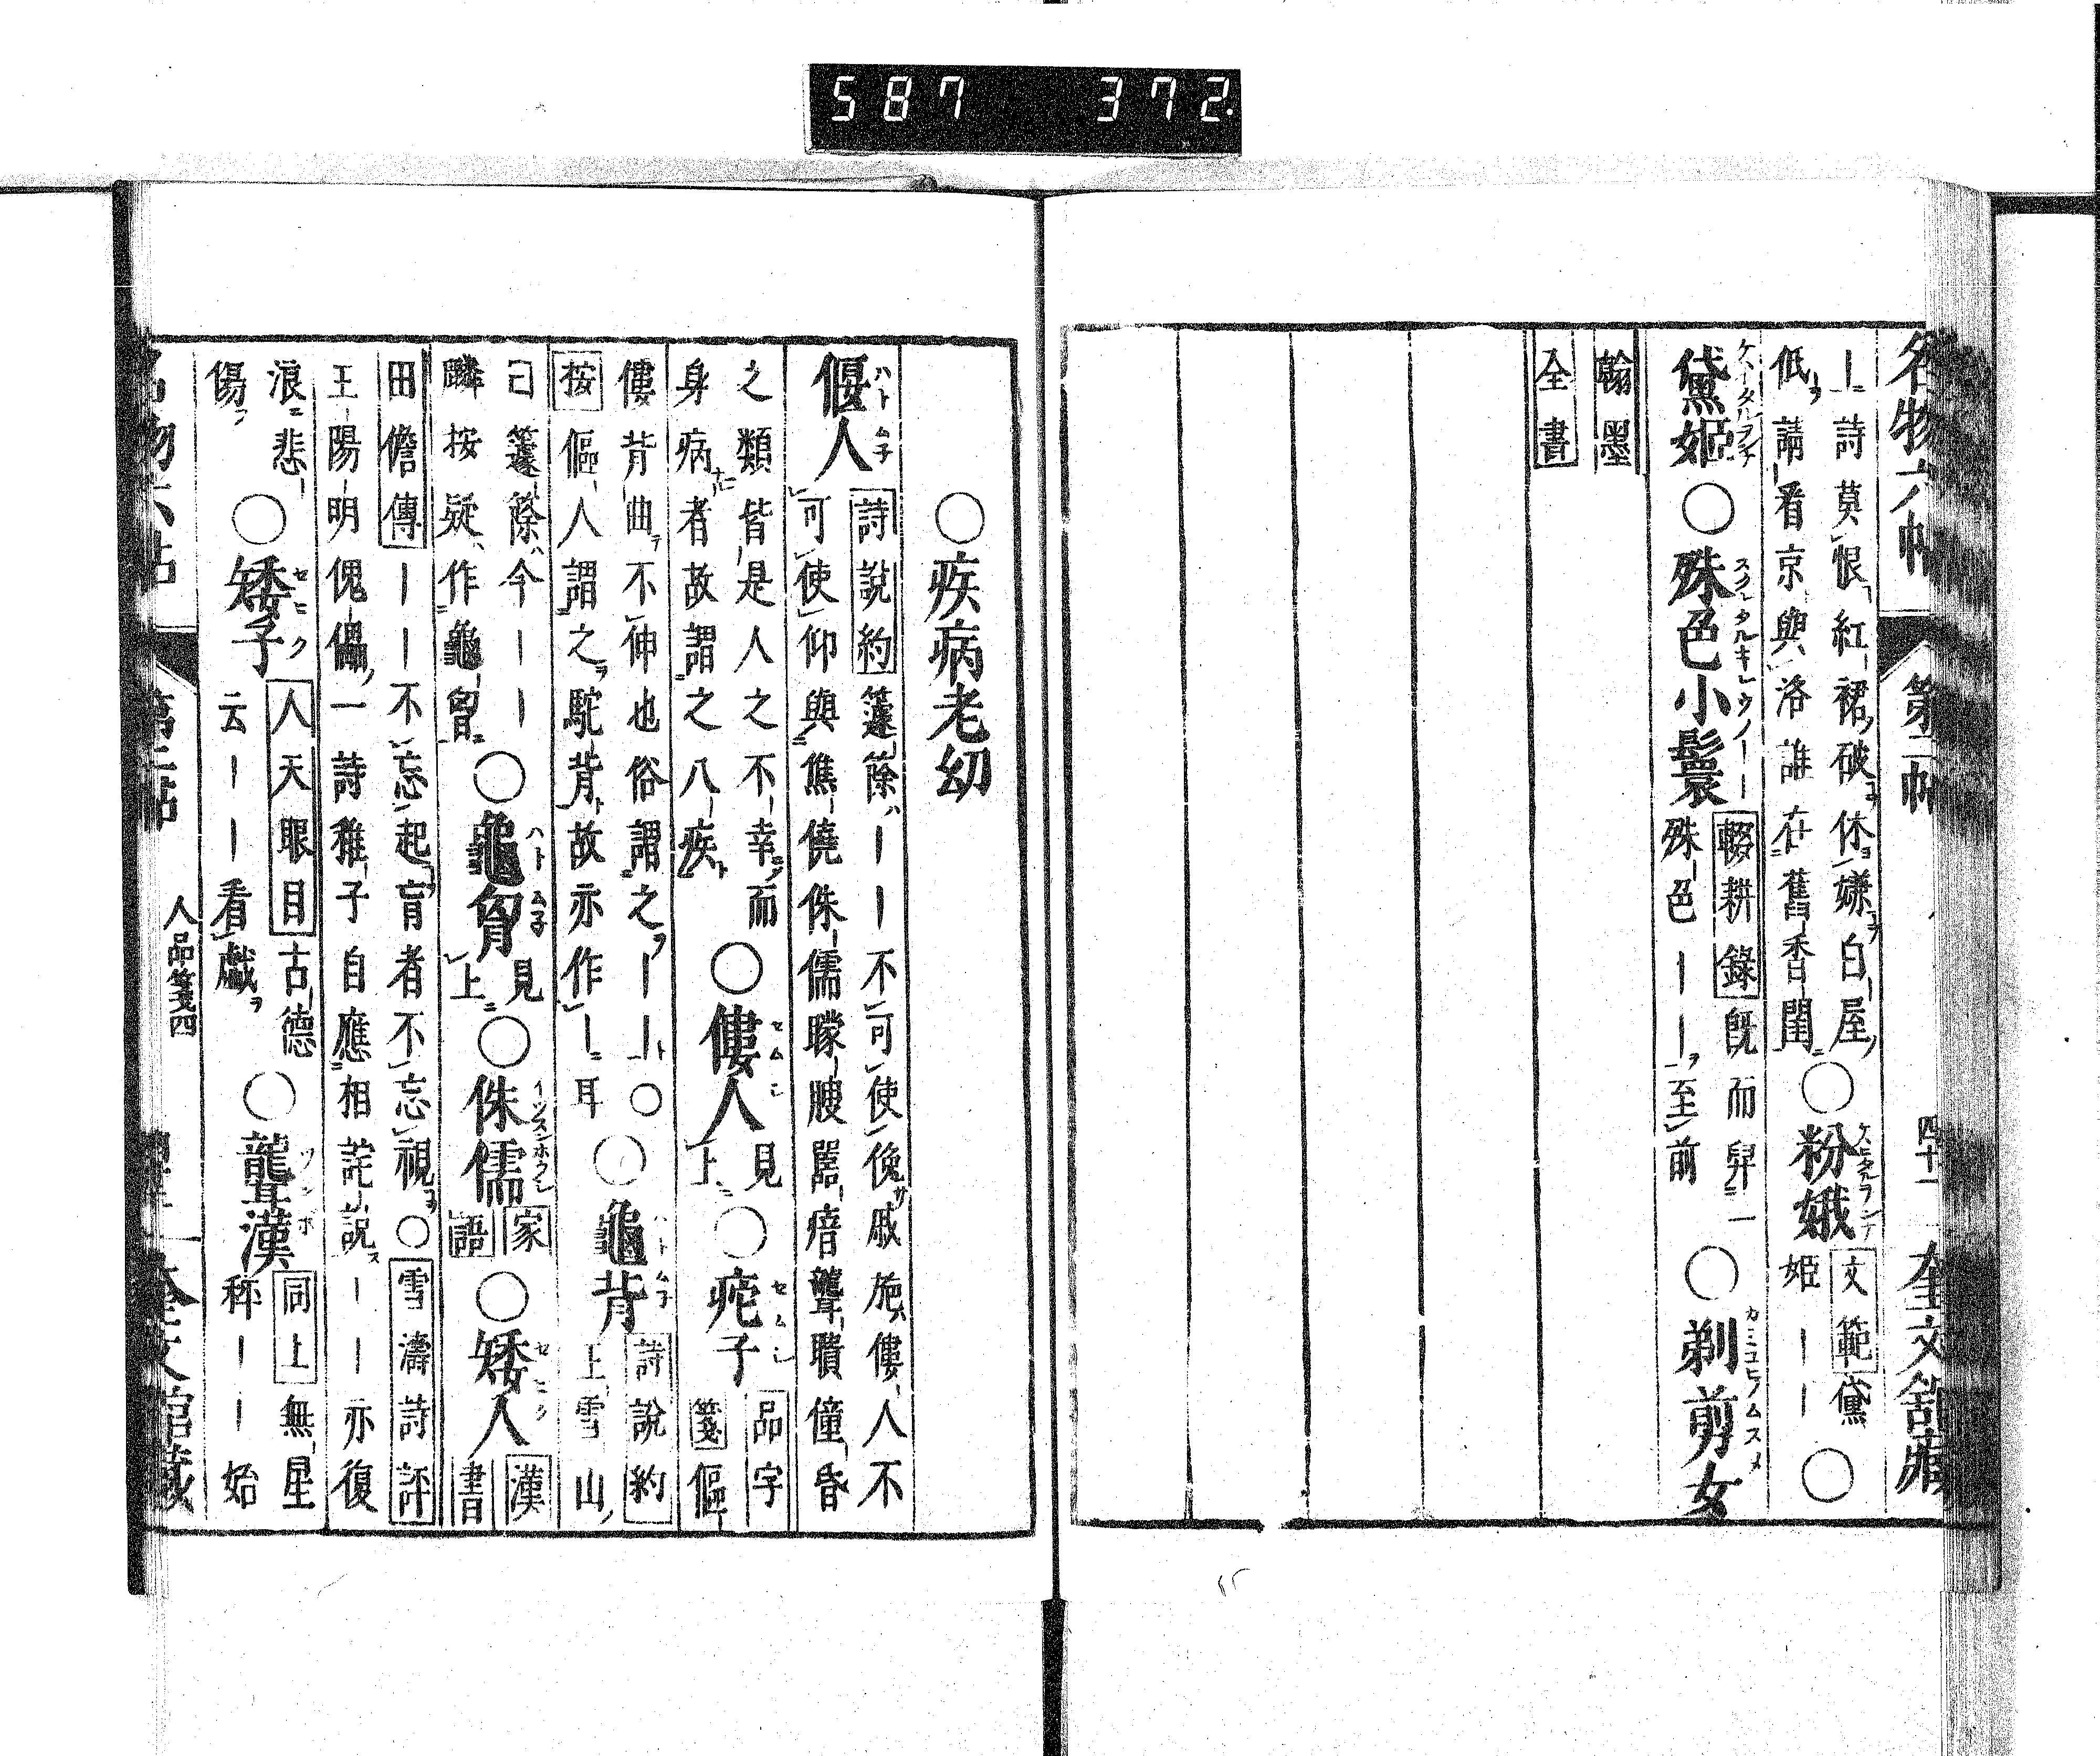 587 372.
名物六帖 第二帖 四十一 奎文館藏
｜詩莫恨紅裙破休嫌白屋
低請看京與洛誰在舊香閨
○粉娥 文範 黛
姬｜｜○
黛姬○殊色小鬟 輟耕錄 既而舁一
殊色｜｜至前
○剃剪女
翰墨
全書
○疾病老幼
偃人 詩說約 籧篨｜｜不可使俛戚施僂人不
可使仰與僬僥侏儒矇瞍嚚瘖聾聵僮昏
之類皆是人之不幸而
身病者故謂之八疾
○僂人 見
上
○疙子 品字
箋 傴
僂背曲不伸也俗謂之｜｜○
按 傴人謂之駝背故亦作｜耳
○龜背 詩說約
王雪山
曰籧篨今｜｜
麟按疑作龜胷
○龜胷 見
上
○侏儒 家
語
○矮人 漢
書
田儋傳｜｜不忘起盲者不忘視○雪濤詩評
王陽明傀儡一詩稚子自應相詫說｜｜亦復
浪悲
傷
○矮子 人天眼目 古德
云｜｜看戲
○聾漢 同上 無星
秤｜｜始
人品箋四